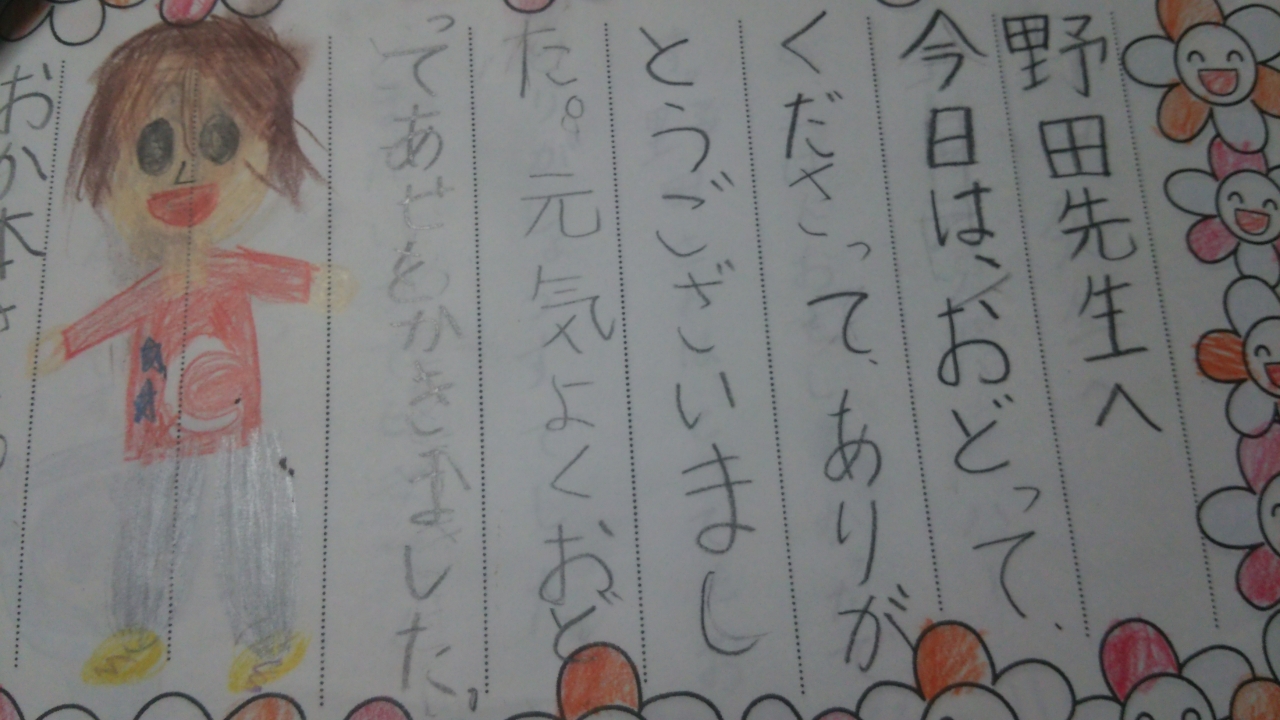 野田先生へ
今日は、おどって、
くださって、ありが
とうございまし
た。元気よくおど
ってあせをかきました。
おか本さ